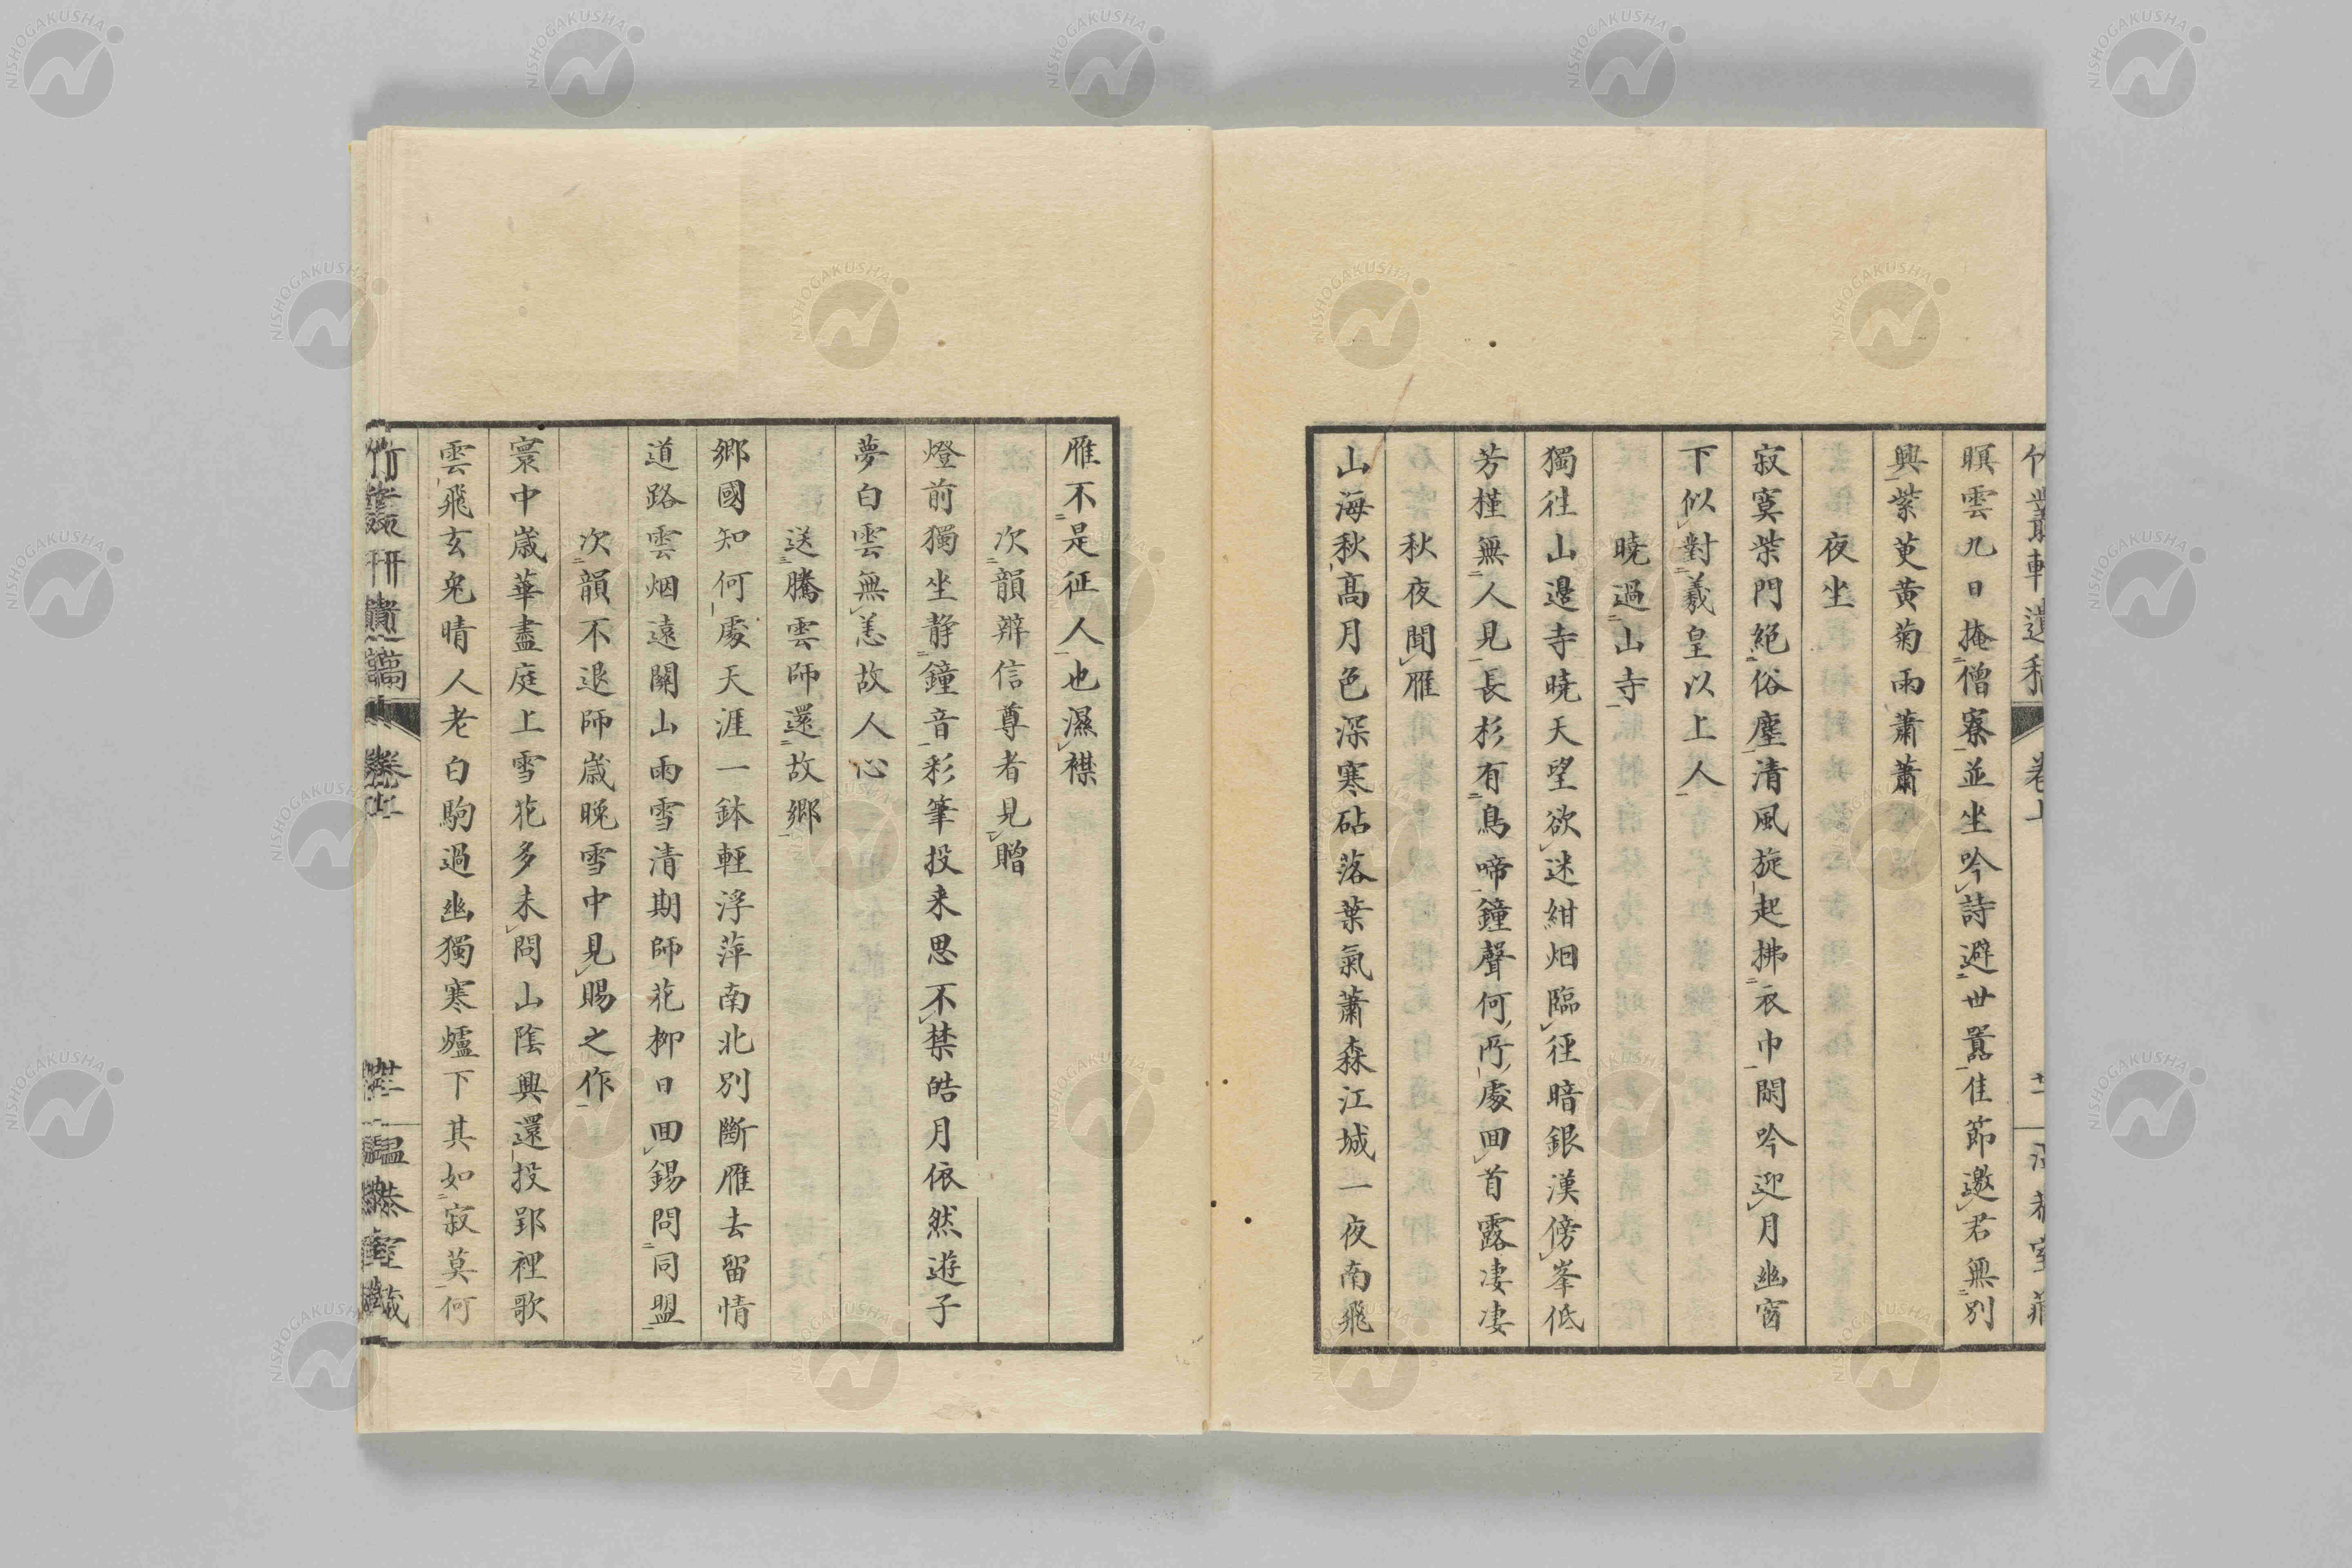 竹叢軒遺稿 卷上
暝雲九日掩僧寮並坐吟詩避世囂佳節邀君無別
興紫萸黄菊雨蕭蕭
夜坐
寂寞柴門絕俗塵清風旋起拂衣巾閑吟迎月幽窗
下似對羲皇以上人
曉過山寺
獨往山邊寺曉天望欲迷紺烟臨徑暗銀漢傍峯低
芳槿無人見長杉有鳥啼鐘聲何所處回首露凄凄
秋夜聞雁
山海秋高月色深寒砧落葉氣蕭森江城一夜南飛
雁不是征人也濕襟
次韻辨信尊者見贈
燈前獨坐静鐘音彩筆投来思不禁皓月依然遊子
夢白雲無恙故人心
送騰雲師還故鄉
鄉國知何處天涯一鉢輕浮萍南北別斷雁去留情
道路雲烟遠關山雨雪清期師花柳日回錫問同盟
次韻不退師歲晚雪中見賜之作
寰中歲華盡庭上雪花多未問山陰興還投郢裡歌
雲飛玄兔晴人老白駒過幽獨寒爐下其如寂莫何
NISHOGAKUSHA